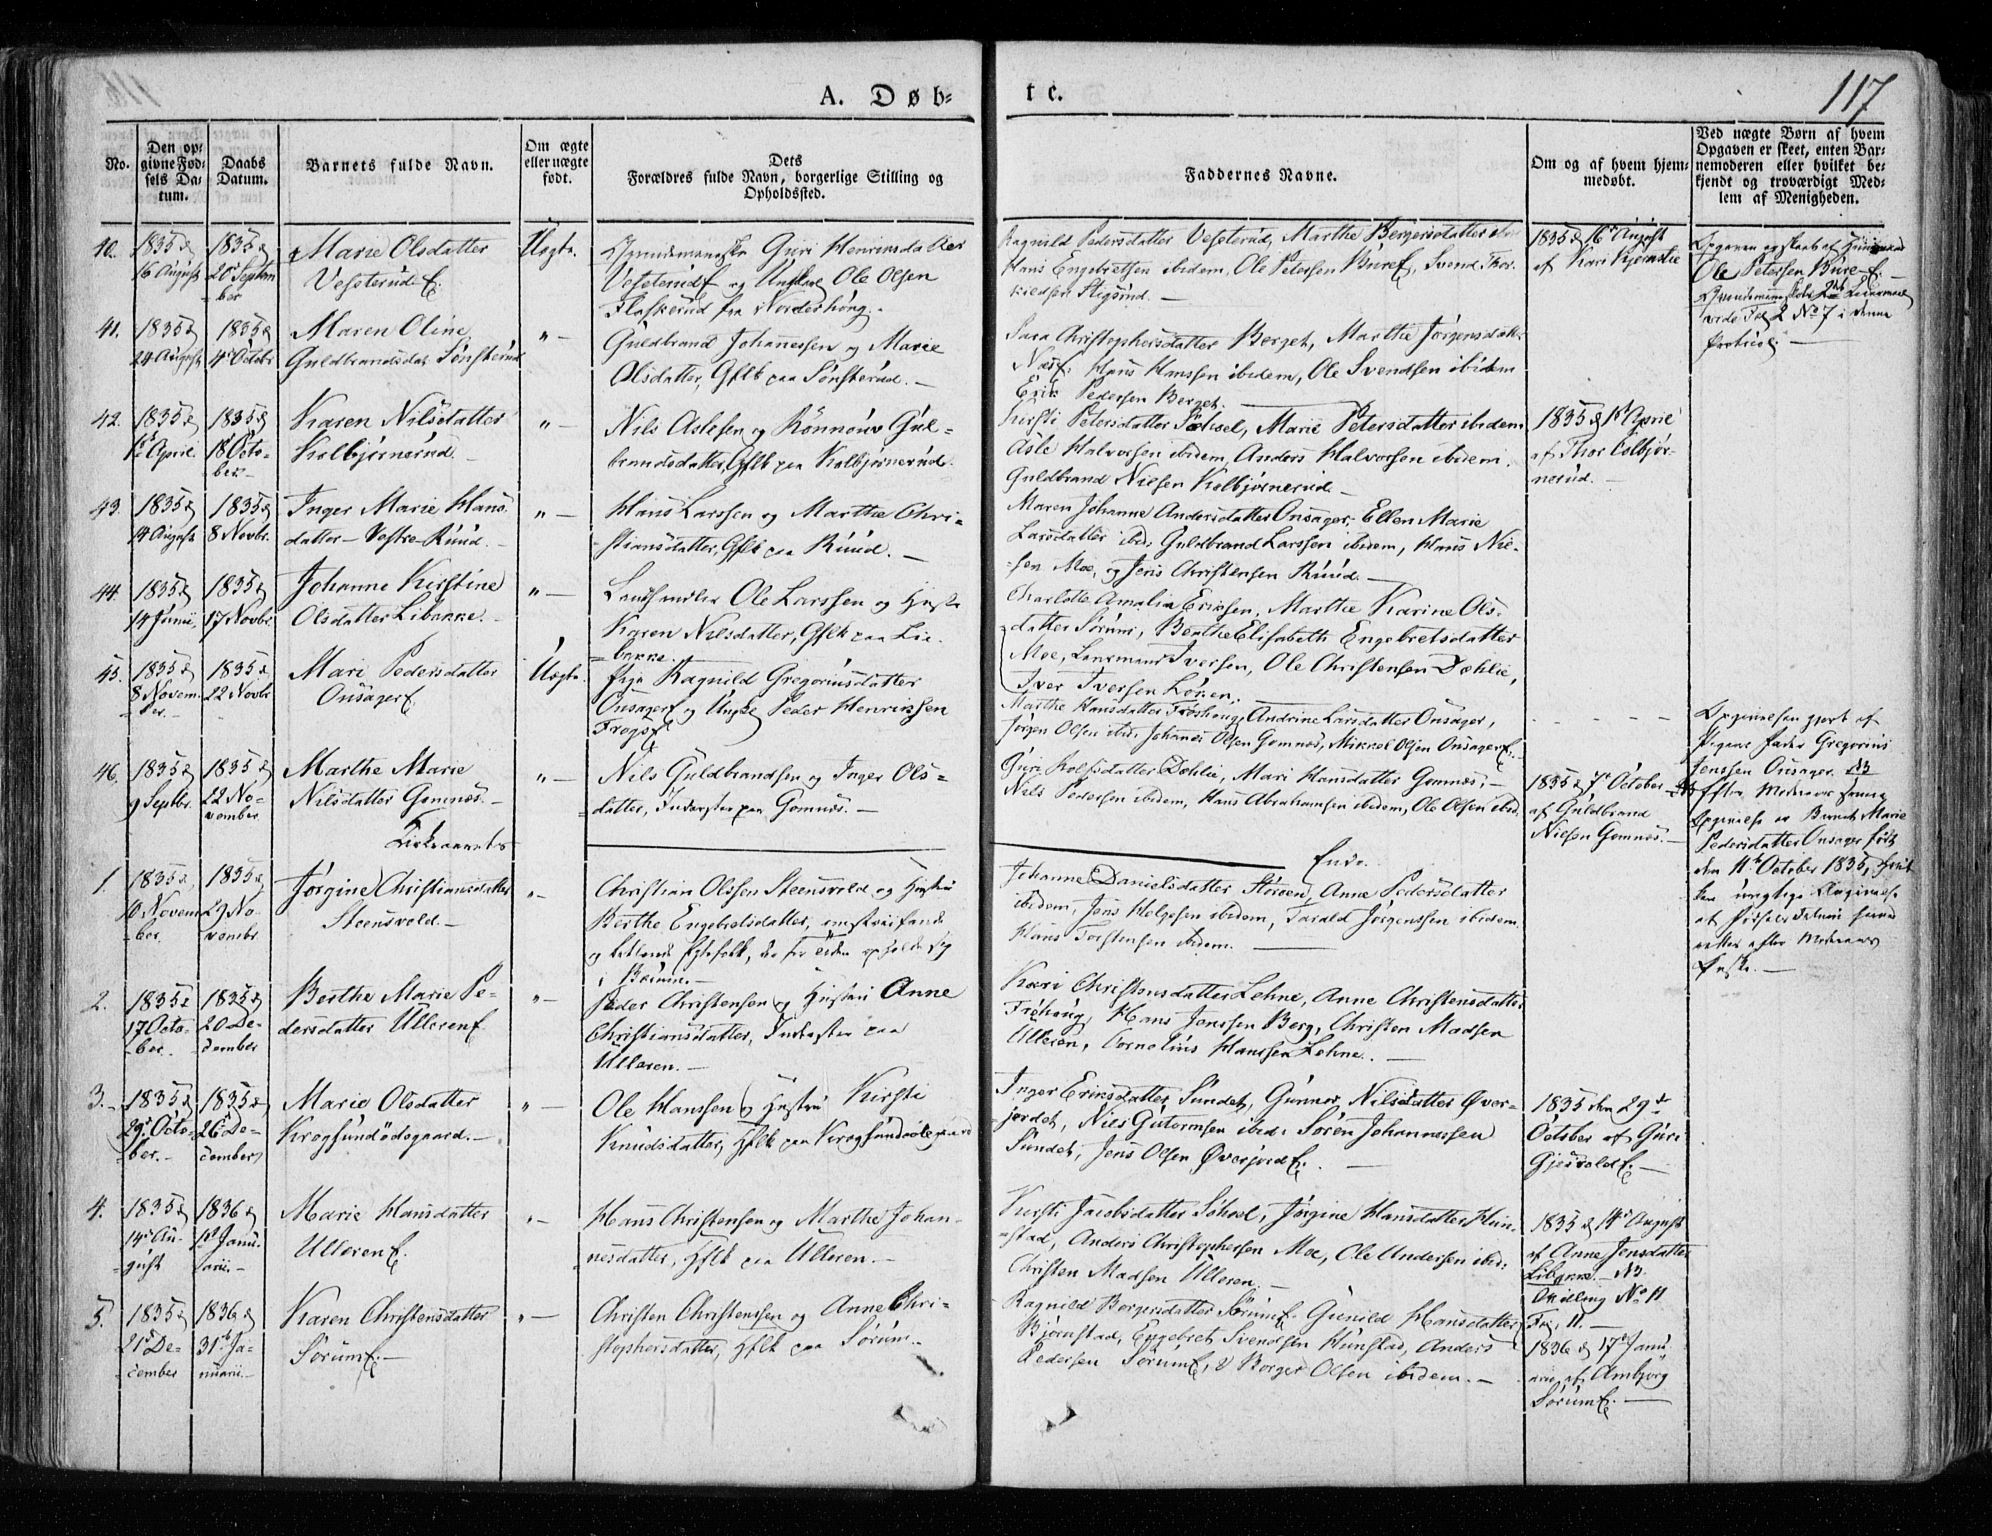 117
A. Døb-
te.
No.
Den op-
givne Fød-
sels Da-
tum.
Daabs
Datum.
Barnets fulde Navn.
Om ægte
eller uægte
født.
Dets
Forældres fulde Navn, borgerlige Stilling og
Opholdssted.
Faddernes Navne.
Om og af hvem hjem-
medøbt.
Ved uægte Børn af hvem
Opgaven er skeet, enten Bar-
nemoderen eller hvilket be-
kjendt og troværdigt Med-
lem af Menigheden.
40.
1835 d
16 August
1835 d
20 Septem
ber
Marie Olsdatter
Veseterud E.
Uægte.
Guri Henriksdatter
Veseterud E og Ole Olsen
Flaskerud fra Norderhoug.
Ragnild Pedersdatter Veseterud, Marthe Bergersdatter
Hans Engebretsen ibidem, Ole Petersen Bure E, Svend Thor-
kildsen Stigsrud. —
1835 d 16 August
af Kari
Ole Petersen Bure E. —
No 7 i denne
Protocol —
41.
1835 d
24 August
1835 d
4 Octobr
Maren Oline
Guldbrandsdat Sønsterud
" —
Guldbrand Johannessen og Marie
Olsdatter, Gflk paa Sønsterud. —
Sara Christophersdatter Berget, Marthe Jørgensdatter
Næs E. Hans Hanssen ibidem, Ole Svendsen ibidem
Erik Pedersen Berget.
42.
1835 d
1 April
1835 d
18 Octo-
ber
Karen Nilsdatter
Kolbjørnerud. —
" —
Nils Aslesen og Rønnouv Gul-
brandsdatter, Gflk paa Kolbjørnerud.
Kirsti Petersdatter Søhoel, Marie Petersdatter ibidem
Asle Halvorsen ibidem, Anders Halvorsen ibidem.
Guldbrand Nielsen Kolbjørnerud. —
1835 d 1 April
af Thor Colbjør-
nerud. —
43.
1835 d
14 August
1835 d
8 Novbr.
Inger Marie Hans
datter — Vestre Ruud. —
" —
Hans Larssen og Marthe Chri-
stiansdatter, Gflk paa Ruud. —
Maren Johanne Andersdatter Onsager, Ellen Marie
Larsdatter ibid. Guldbrand Larssen ibidem, Hans Nil-
sen Moe, og Jens Christensen Ruud. —
44.
1835 d
14 Junii,
1835 d
17 Novbr.
Johanne Kirstine
Olsdatter Libakke. —
" —
Ole Larssen og Hustru
Karen Nilsdatter, Gflk paa Li-
bakke.
Charlotte Amalia Eriksen, Marthe Karine Ols-
datter Sørum, Berthe Elisabeth Engebretsdatter
Moe, Lensmand Iversen, Ole Christensen Dæhlie,
Iver Iversen Løken.
45.
1835 d
8 Novem-
ber. —
1835 d
22 Novbr
Mari Pedersdatter
Onsager E.
Uægte.
Pige Ragnild Gregoriusdatter
Onsager E og Ungk. Peder Henriksen
Frogs E.
Marthe Hansdatter Frøshoug, Andrine Larsdatter Onsager,
Jørgen Olsen ibid. Johannes Olsen Gomnæs, Mikkel Olsen Onsager E.
Opgivelsen gjort af
Pigens Fader Gregorius
Jenssen Onsager. NB
Efter Moderens
Opgivelse er Barnet Marie
Pedersdatter Onsager født
den 11te October 1835,
urigtige Angivelse
af Fødsels Datum
rettes efter Moderens
Ønske. —
46.
1835 d
9 Septbr.
1835 d
22 No-
vember
Marthe Marie
Nilsdatter Gomnæs. —
" —
Nils Guldbrandsen og Inger Ols-
datter, Inderster paa Gomnæs. —
Guri Rolfsdatter Dæhlie, Mari Hansdatter Gomnæs, —
Nils Pedersen ibidem, Hans Abrahamsen ibidem, Ole Olsen ibid.
1835 d 7 October
af Guldbrand
Nielsen Gomnæs. —
Kirkeaarets
Ende.
1.
1835 d
10 Novem
ber.
1835 d
29 No-
vembr
Jørgine Christiansdatter
Steensvold. —
" —
Christian Olssen Steensvold og Hustru
Berthe Engebretsdatter, omstreifende
og
i Bærum. —
Johanne Danielsdatter Støroen, Anne Pedersdatter
ibidem, Jens Helgesen ibidem, Tarald Jørgenssen ibidem
Hans Torstensen ibidem. —
2.
1835 d
17 Octo-
ber.
1835 d
20 De-
cember
Berthe Marie Pe-
dersdatter Ulleren E.
" —
Peder Christensen og Hustru Anne
Christiansdatter, Inderster paa
Ulleren. —
Kari Christensdatter Lehne, Anne Christensdatter
Frøhoug, Hans Jenssen Berg, Christen Madsen
Ulleren, Cornelius Hanssen Lehne. —
3. -
1835 d
29 Octo-
ber. —
1835 d
26 De-
cember
Marie Olsdatter
Krogsundødegaard. —
" —
Ole Hanssen og Hustru Kirsti
Knudsdatter, Gflk paa Krogsundødegaard
Inger Eriksdatter Sundet, Gunnor Nilsdatter Øver-
jordet, Niels Gutormsen ibid. Søren Johannessen
Sundet, Jens Olsen Øverjord E. —
1835 den 29
October af Guri
Gjesvold E. —
4.
1835 d
14 Au-
gust
1836 d
1 Janu-
arii. —
Marie Hansdatter
Ulleren E.
" —
Hans Christensen og Marthe Johan-
nesdatter, Gflk paa Ulleren. —
Kirsti Jacobsdatter Søhoel, Jørgine Hansdatter Hun-
stad, Anders Christophersen Moe, Ole Andersen ibid.
Christen Madsen Ulleren. —
1835 d 14 August
af Anne Jensdatter
Libakke. — NB.
No 11
11. —
5.
1835 d
21 De-
cember
1836 d
31 Ja-
nuarii. —
Karen Christensdatter
Sørum E. —
" —
Christen Christenssen og Anne Chri-
stophersdatter, Gflk paa Sørum. —
Ragnild Borgersdatter Sørum E. Gunild Hansdatter
Bjørnstad, Engebret Svendsen Hunstad, Anders
Pedersen Sørum E, & Borger Olsen ibidem. —
1836 d 17 Janu-
arii af Ambjørg
Sørum E. —